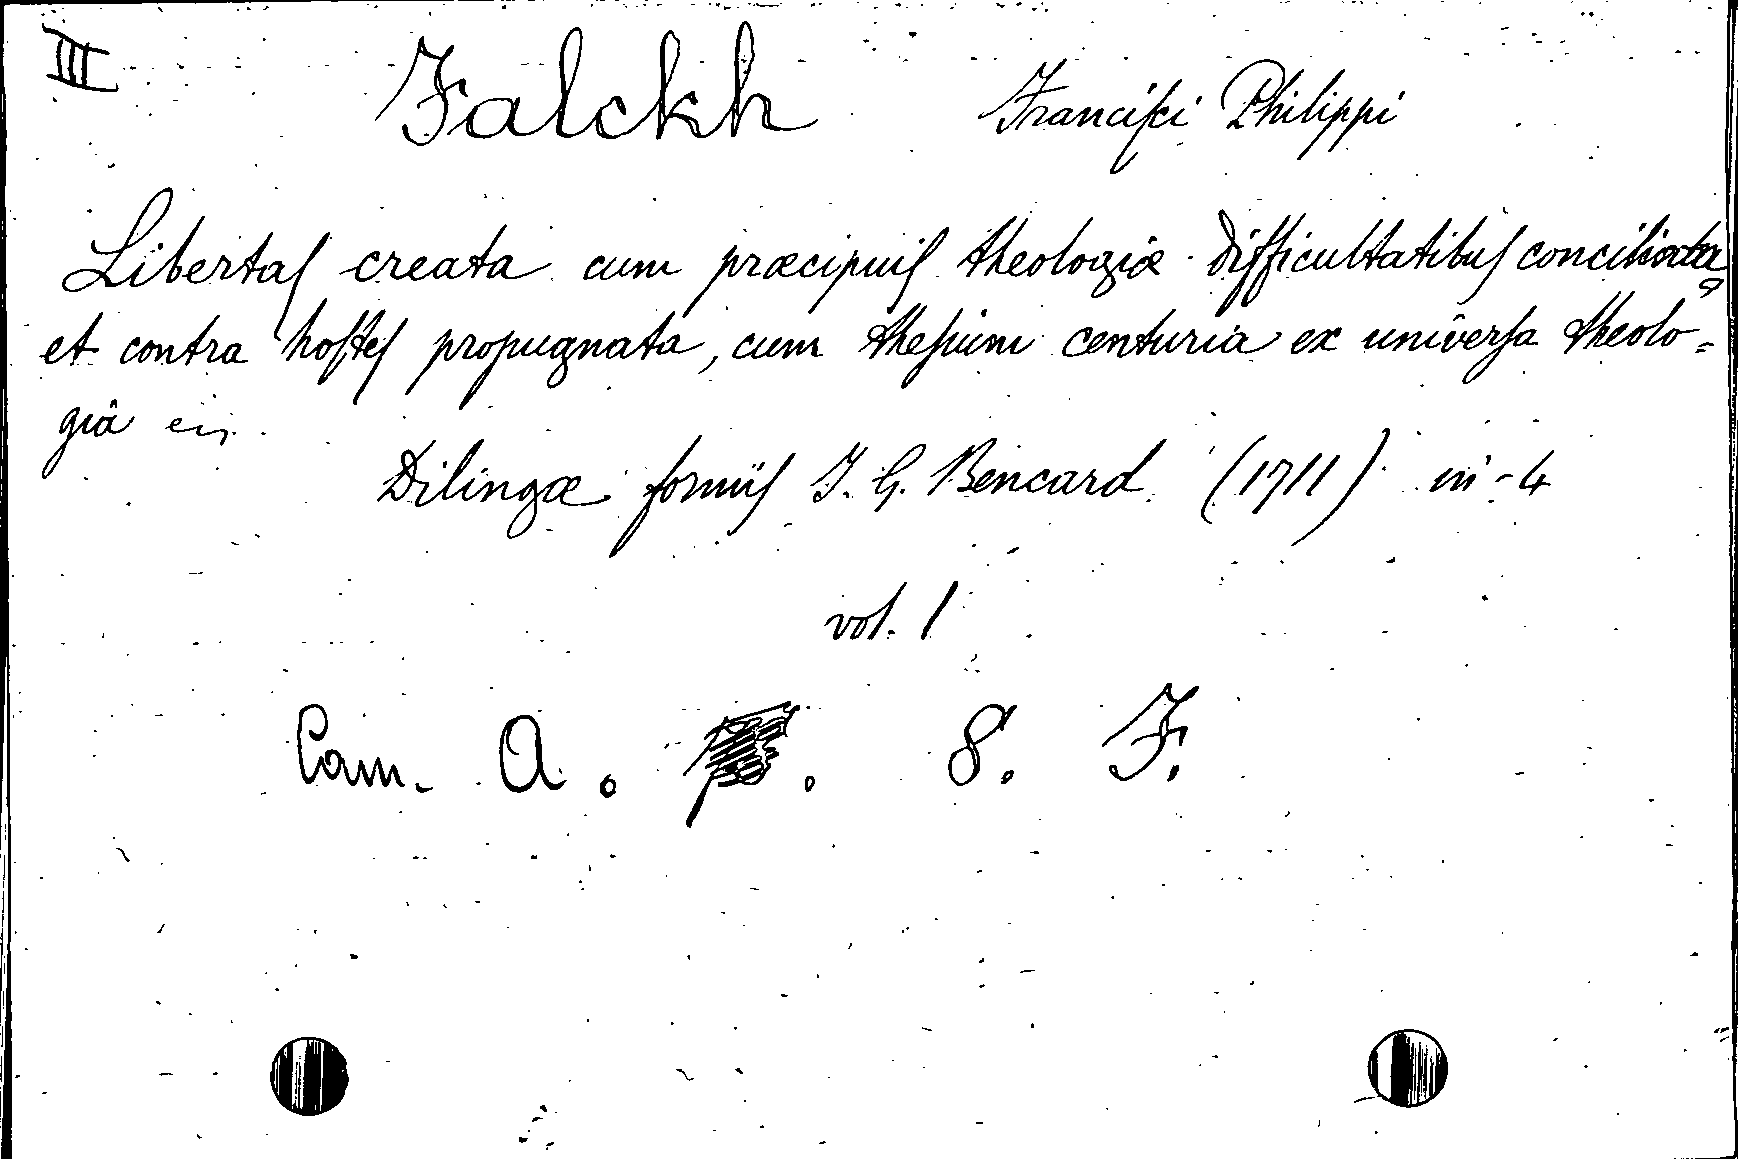 III Falckh Francisci Philippi
Libertas creata cum præcipuis theologiæ difficultatibus conciliata
et contra hostes propugnata, cum thesium centuria ex universa theolo=
giâ
Dilingæ formis J. G. Bencard (1711) in-4
vol. 1
Cam. A. . 8. F.